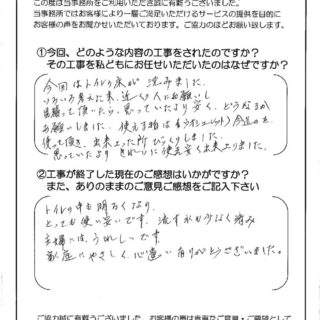 この度は当事務所をご利用いただき誠に有難うございました。
当事務所ではお客様により一層ご満足いただけるサービスの提供を目的に
お客様の声をお聞かせいただいております。ご協力のほどお願い致します。
①今回、どのような内容の工事をされたのですか？
その工事を私どもにお任せいただいたのはなぜですか？
今回はトイレの床が沈みました。
いろいろ考えた末、近所の人にお願いし
見積って頂いたら、思っていたより安く、
お願いしました。
使って頂き、出来上った所びっくりしました。
思っていたよりきれいに使え安く出来上りました。
②工事が終了した現在のご感想はいかがですか？
また、ありのままのご意見ご感想をご記入下さい
トイレの中も明るくなり、
とっても使い安いです。流す水も少なく済み
主婦には、うれしいです。
家庭にやさしく、心遣い有りがとうございました。
ご協力誠に有難うございました。お客様の声は貴重なご意見・ご要望として